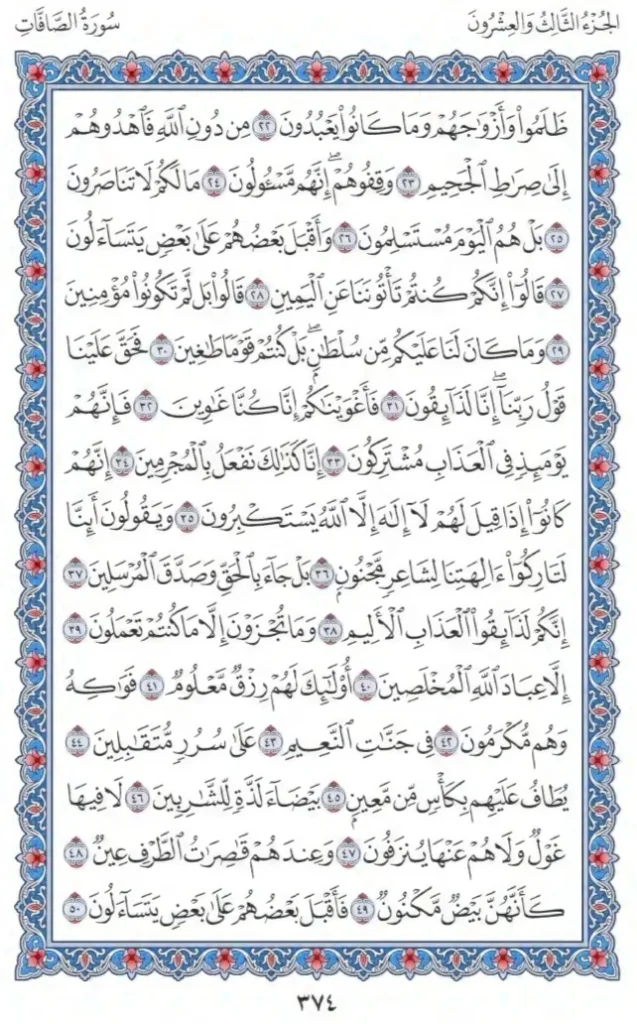 الجُزْءُ الثَّالِثُ وَالعِشْرُونَ
سُورَةُ الصَّافَّاتِ
ظَلَمُوا۟ وَأَزْوَٰجَهُمْ وَمَا كَانُوا۟ يَعْبُدُونَ ٢٢ مِن دُونِ ٱللَّهِ فَٱهْدُوهُمْ
إِلَىٰ صِرَٰطِ ٱلْجَحِيمِ ٢٣ وَقِفُوهُمْ ۖ إِنَّهُم مَّسْـُٔولُونَ ٢٤ مَا لَكُمْ لَا تَنَاصَرُونَ
٢٥ بَلْ هُمُ ٱلْيَوْمَ مُسْتَسْلِمُونَ ٢٦ وَأَقْبَلَ بَعْضُهُمْ عَلَىٰ بَعْضٍ يَتَسَآءَلُونَ
٢٧ قَالُوٓا۟ إِنَّكُمْ كُنتُمْ تَأْتُونَنَا عَنِ ٱلْيَمِينِ ٢٨ قَالُوا۟ بَل لَّمْ تَكُونُوا۟ مُؤْمِنِينَ
٢٩ وَمَا كَانَ لَنَا عَلَيْكُم مِّن سُلْطَٰنٍۭ ۖ بَلْ كُنتُمْ قَوْمًا طَٰغِينَ ٣٠ فَحَقَّ عَلَيْنَا
قَوْلُ رَبِّنَآ ۖ إِنَّا لَذَآئِقُونَ ٣١ فَأَغْوَيْنَٰكُمْ إِنَّا كُنَّا غَٰوِينَ ٣٢ فَإِنَّهُمْ
يَوْمَئِذٍ فِى ٱلْعَذَابِ مُشْتَرِكُونَ ٣٣ إِنَّا كَذَٰلِكَ نَفْعَلُ بِٱلْمُجْرِمِينَ ٣٤ إِنَّهُمْ
كَانُوٓا۟ إِذَا قِيلَ لَهُمْ لَآ إِلَٰهَ إِلَّا ٱللَّهُ يَسْتَكْبِرُونَ ٣٥ وَيَقُولُونَ أَئِنَّا
لَتَارِكُوٓا۟ ءَالِهَتِنَا لِشَاعِرٍ مَّجْنُونٍۭ ٣٦ بَلْ جَآءَ بِٱلْحَقِّ وَصَدَّقَ ٱلْمُرْسَلِينَ ٣٧
إِنَّكُمْ لَذَآئِقُوا۟ ٱلْعَذَابِ ٱلْأَلِيمِ ٣٨ وَمَا تُجْزَوْنَ إِلَّا مَا كُنتُمْ تَعْمَلُونَ ٣٩
إِلَّا عِبَادَ ٱللَّهِ ٱلْمُخْلَصِينَ ٤٠ أُو۟لَٰٓئِكَ لَهُمْ رِزْقٌ مَّعْلُومٌ ٤١ فَوَٰكِهُ
وَهُم مُّكْرَمُونَ ٤٢ فِى جَنَّٰتِ ٱلنَّعِيمِ ٤٣ عَلَىٰ سُرُرٍ مُّتَقَٰبِلِينَ ٤٤
يُطَافُ عَلَيْهِم بِكَأْسٍ مِّن مَّعِينٍۭ ٤٥ بَيْضَآءَ لَذَّةٍ لِّلشَّٰرِبِينَ ٤٦ لَا فِيهَا
غَوْلٌ وَلَا هُمْ عَنْهَا يُنزَفُونَ ٤٧ وَعِندَهُمْ قَٰصِرَٰتُ ٱلطَّرْفِ عِينٌ ٤٨
كَأَنَّهُنَّ بَيْضٌ مَّكْنُونٌ ٤٩ فَأَقْبَلَ بَعْضُهُمْ عَلَىٰ بَعْضٍ يَتَسَآءَلُونَ ٥٠
٣٧٤